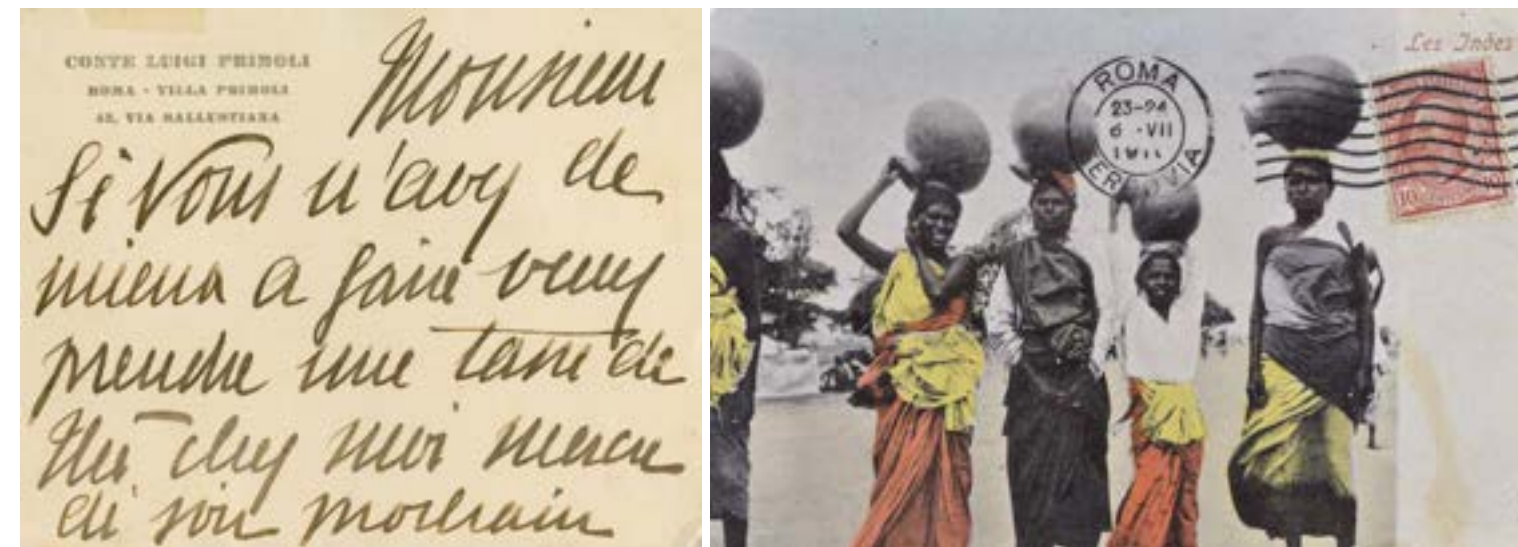 CONTE LUIGI PRIMOLI
ROMA - VILLA PRIMOLI
42, VIA SALLUSTIANA
Monsieur
Si vous n'avez de
mieux a faire venez
prendre une tasse de
thé chez moi mercre
di soir prochain
Les Indes
ROMA
23-24
6 ·VII
FERROVIA
10